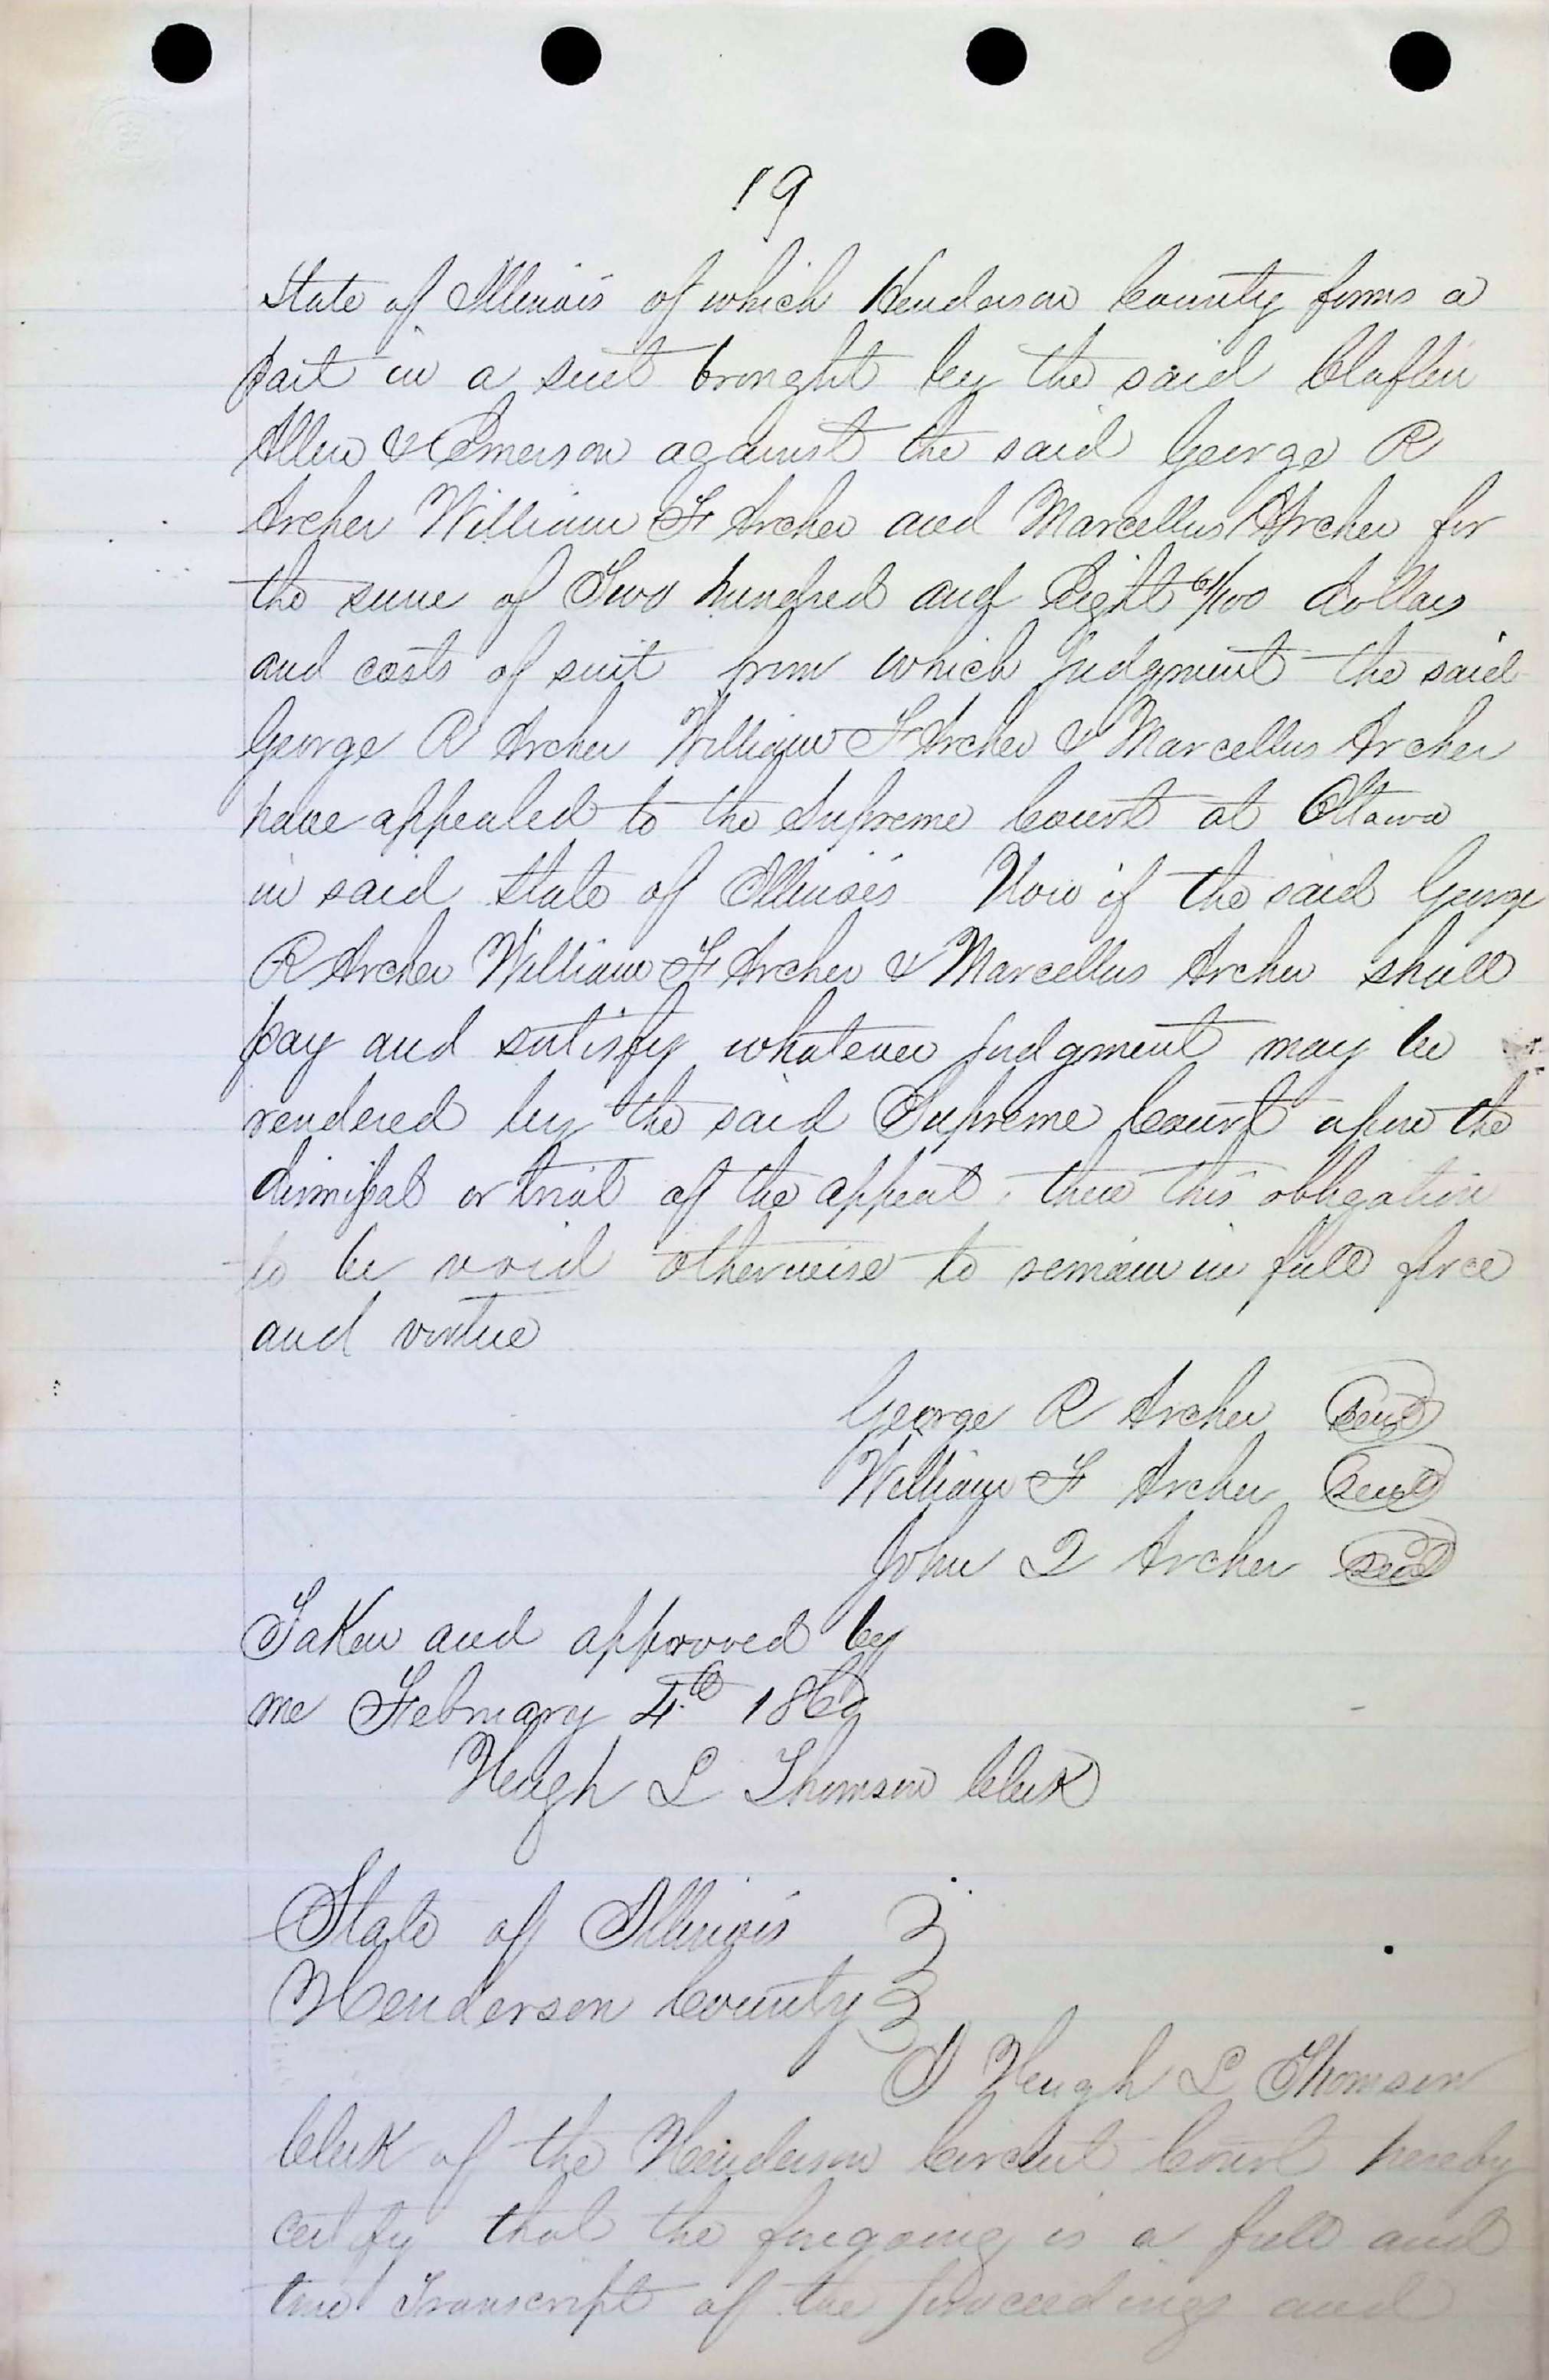 19
State of Illinois of which Henderson County forms a
part in a suit brought by the said Claflin
Allen & Emerson against the said George R
Archer William F Archer and Marcellus Archer for
the sum of Two hundred and Eight 61/100 dollars
and costs of suit from which judgment the said
George R Archer William F Archer & Marcellus Archer
have appealed to the Supreme Court at Ottawa
in said State of Illinois Now if the said George
R Archer William F Archer & Marcellus Archer shall
pay and satisfy whatever judgment may be
rendered by the said Supreme Court upon the
dismissal or trial of the appeal, then this obligation
to be void otherwise to remain in full force
and virtue
George R Archer Seal
William F Archer Seal
John Q Archer Seal
Taken and approved by
me February 4th
Hugh L Thomson Clerk
State of Illinois
Henderson County
I Hugh L Thomson
Clerk of the Henderson Circuit Court hereby
certify that the foregoing is a full and
true Transcript of the proceedings and